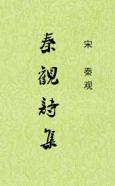 宋 秦观
秦觀詩集